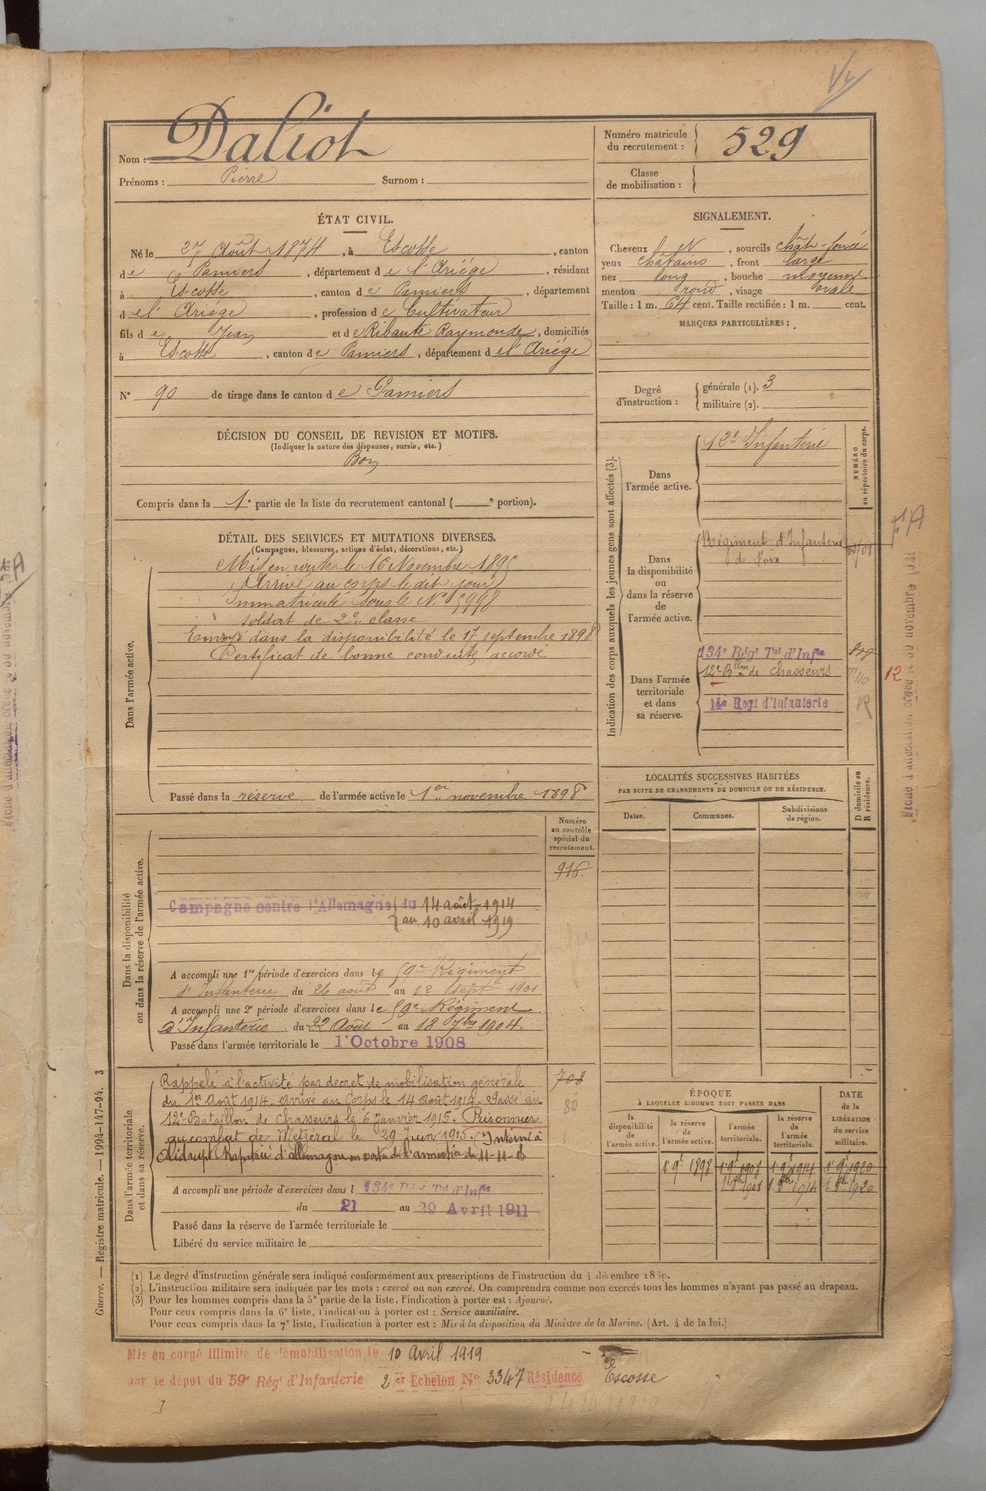 Nom : Daliot
Prénoms : Pierre Surnom :
Numéro matricule du recrutement : 529
Classe de mobilisation :
ÉTAT CIVIL.
Né le 27 Août 1874, à Escosse, canton
de Pamiers, département de l'Ariège, résidant
à Escosse, canton de Pamiers, département
de l'Ariège, profession de Cultivateur
fils de Jean et de Ribaute Raymonde, domiciliés
à Escosse, canton de Pamiers, département de l'Ariège
N° 90 de tirage dans le canton de Pamiers
SIGNALEMENT.
Cheveux sourcils chât-foncé
yeux châtains, front large
nez long, bouche moyenne
menton rond, visage ovale
Taille : 1 m. 64 cent. Taille rectifiée : 1 m. cent.
MARQUES PARTICULIÈRES :
Degré d'instruction : générale (1). 3
militaire (2).
DÉCISION DU CONSEIL DE REVISION ET MOTIFS.
(Indiquer la nature des dispenses, sursis, etc.)
Bon
Compris dans la 1e partie de la liste du recrutement cantonal ( e portion).
DÉTAIL DES SERVICES ET MUTATIONS DIVERSES.
(Campagnes, blessures, actions d'éclat, décorations, etc.)
Dans l'armée active.
Mis en route le 16 Novembre 1895
Arrivé au corps le dit jour
Immatriculé sous le N°
soldat de 2e classe
Envoyé dans la disponibilité le 17 septembre 1898
Certificat de bonne conduite accordé
Passé dans la réserve de l'armée active le 1er novembre 1898
Indication des corps auxquels les jeunes gens sont affectés (3).
NUMÉRO au répertoire du corps.
Dans l'armée active.
12e Infanterie
Dans la disponibilité ou dans la réserve de l'armée active.
Régiment d'Infanterie
de Foix
Dans l'armée territoriale et dans sa réserve.
134e Régt Tal d'Infie
12e Blon de chasseurs
12
14e Regt d'Infanterie
R
LOCALITÉS SUCCESSIVES HABITÉES
PAR SUITE DE CHANGEMENTS DE DOMICILE OU DE RÉSIDENCE.
Dates.
Communes.
Subdivisions de région.
D domicile ou R résidence.
Dans la disponibilité ou dans la réserve de l'armée active.
Numéro au contrôle spécial du recrutement.
916
Campagne contre l'Allemagne du 14 août 1914
au 10 avril 1919
A accompli une 1re période d'exercices dans le 59e Régiment
d'Infanterie du 26 août au 22 Septbre 1901
A accompli une 2e période d'exercices dans le 59e Régiment
d'Infanterie du 22 Août au 18 7bre 1904.
Passé dans l'armée territoriale le 1er Octobre 1908
Dans l'armée territoriale et dans sa réserve.
708
80
Rappelé à l'activité par décret de mobilisation générale
du 1er Août 1914. Arrivé au Corps le 14 août 1914. Passé au
12e Bataillon de Chasseurs le 6 Janvier 1915. Prisonnier
au combat de Metzeral le 29 juin 1915. Interné à
Rapatrié d'allemagne en vertu de l'armistice du 11-11-18
A accompli une période d'exercices dans l 134e Régt Tal d'Infie
du 21 au 29 Avril 1911
Passé dans la réserve de l'armée territoriale le
Libéré du service militaire le
ÉPOQUE
À LAQUELLE L'HOMME DOIT PASSER DANS
la disponibilité de l'armée active.
la réserve de l'armée active.
l'armée territoriale.
la réserve de l'armée territoriale.
DATE de la LIBÉRATION du service militaire.
1er 9e 1898
Guerre. — Registre matricule. — 1994-147-94. 3
(1) Le degré d'instruction générale sera indiqué conformément aux prescriptions de l'instruction du 4 décembre 1889.
(2) L'instruction militaire sera indiquée par les mots : exercé ou non exercé. On comprendra comme non exercés tous les hommes n'ayant pas passé au drapeau.
(3) Pour les hommes compris dans la 5e partie de la liste, l'indication à porter est : Ajourné.
Pour ceux compris dans la 6e liste, l'indication à porter est : Service auxiliaire.
Pour ceux compris dans la 7e liste, l'indication à porter est : Mis à la disposition du Ministre de la Marine. (Art. 4 de la loi.)
Mis en congé illimité de démobilisation le 10 Avril 1919
par le dépôt du 59e Régt d'Infanterie 2e Echelon N° 3347 Résidence Escosse